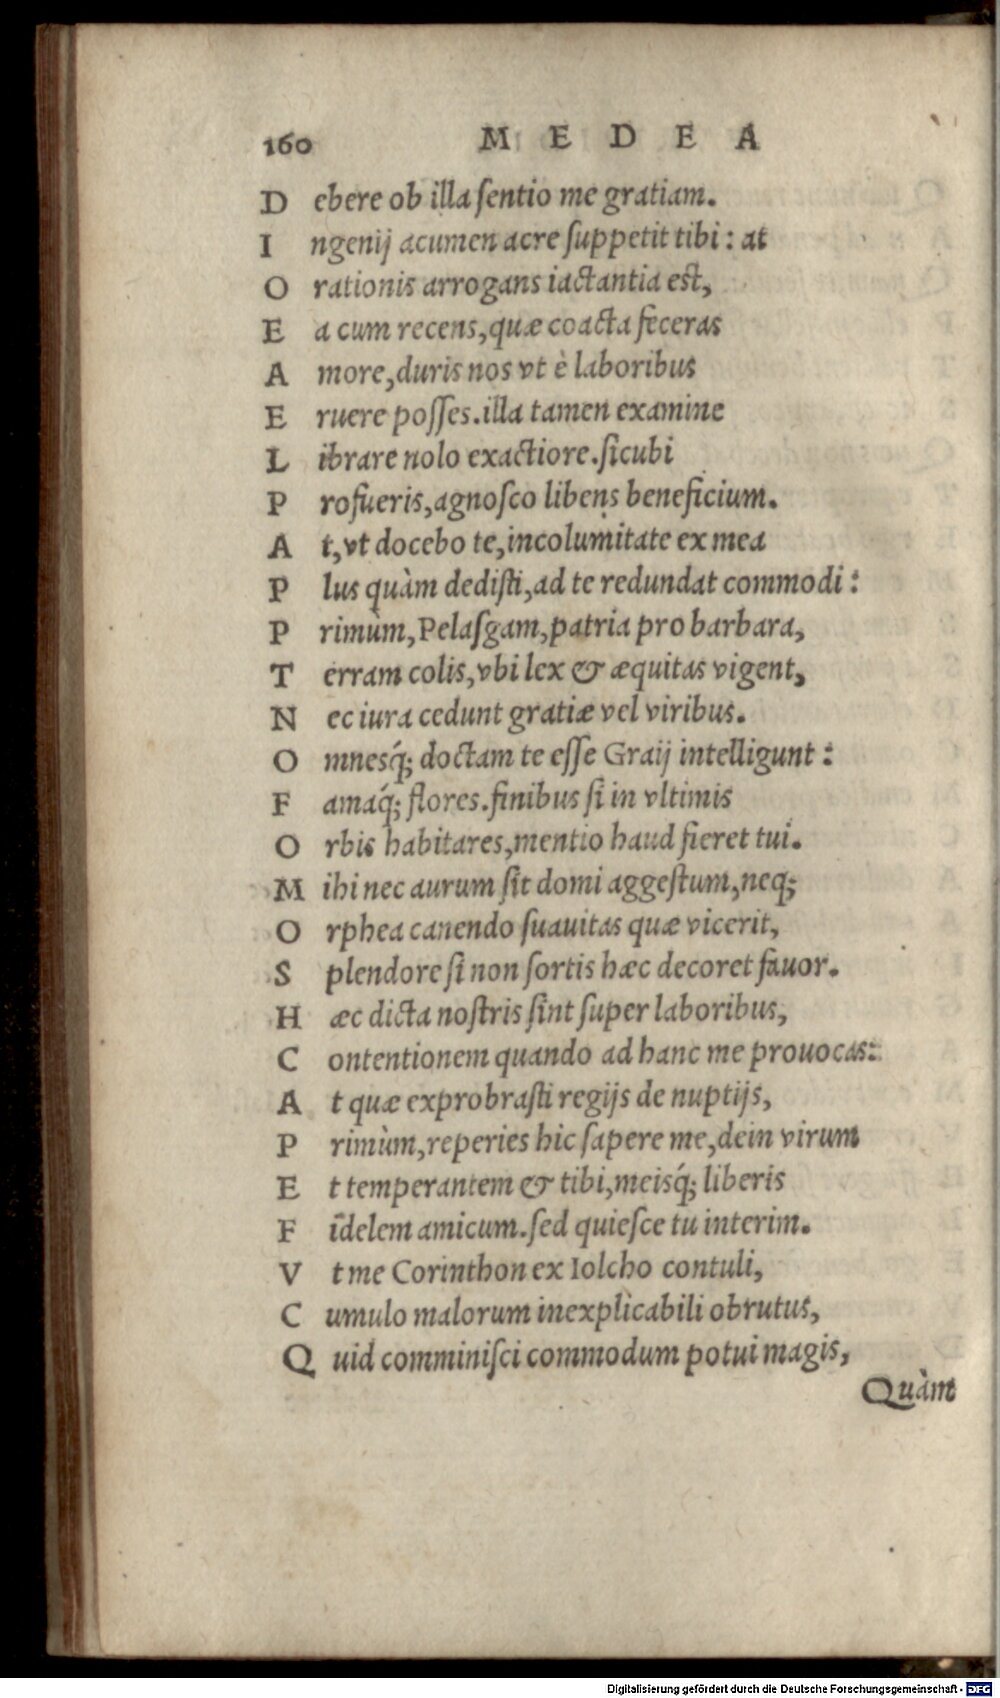 160 MEDEA
Debere ob illa ſentio me gratiam.
Ingenij acumen acre ſuppetit tibi : at
Orationis arrogans iactantia est,
Ea cum recens, quæ coacta feceras
Amore, duris nos vt è laboribus
Eruere poſſes. illa tamen examine
Librare nolo exactiore. ſicubi
Profueris, agnoſco libens beneficium.
At, vt docebo te, incolumitate ex mea
Plus quàm dediſti, ad te redundat commodi :
Primùm, Pelaſgam, patria pro barbara,
Terram colis, vbi lex & æquitas vigent,
Nec iura cedunt gratiæ vel viribus.
Omnesq́; doctam te eſſe Graij intelligunt :
Famaq́; flores. finibus ſi in vltimis
Orbis habitares, mentio haud fieret tui.
Mihi nec aurum ſit domi aggeſtum, neq;
Orphea canendo ſuauitas quæ vicerit,
Splendore ſi non ſortis hæc decoret fauor.
Hæc dicta noſtris ſint ſuper laboribus,
Contentionem quando ad hanc me prouocas:
At quæ exprobraſti regijs de nuptijs,
Primùm, reperies hic ſapere me, dein virum
Et temperantem & tibi, meisq́; liberis
Fidelem amicum. ſed quieſce tu interim.
Vt me Corinthon ex Iolcho contuli,
Cumulo malorum inexplicabili obrutus,
Quid comminiſci commodum potui magis,
Quàm
Digitalisierung gefördert durch die Deutsche Forschungsgemeinschaft - DFG